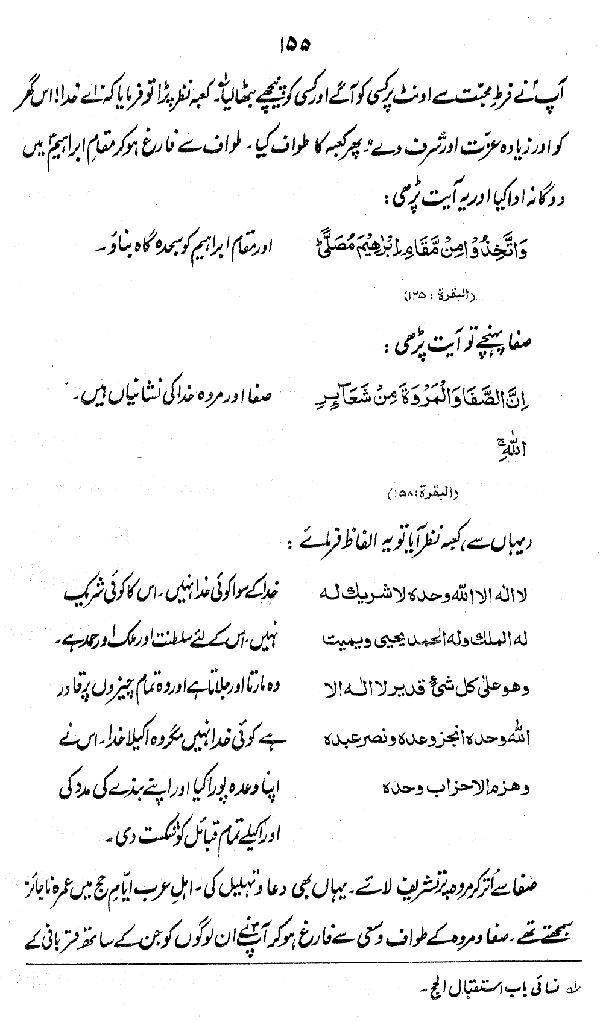 ۱۵۵
آپؐ نے فرطِ محبّت سے اونٹ پر کسی کو آگے اور کسی کو پیچھے بٹھا لیا۔ کعبہ نظر پڑا تو فرمایا کہ "اے خدا! اس گھر
کو اور زیادہ عزّت اور شرف دے" پھر کعبہ کا طواف کیا۔ طواف سے فارغ ہو کر مقامِ ابراہیمؑ میں
دوگانہ ادا کیا اور یہ آیت پڑھی:
وَاتَّخِذُوْا مِنْ مَّقَامِ اِبْرٰهِيْمَ مُصَلًّی ؕ اور مقام ابراہیم کو سجدہ گاہ بناؤ۔
(البقرۃ : ۱۲۵)
صفا پہنچے تو آیت پڑھی:
اِنَّ الصَّفَا وَالْمَرْوَةَ مِنْ شَعَآئِرِ صفا اور مروہ خدا کی نشانیاں ہیں۔
اللّٰهِ ۚ
(البقرۃ: ۱۵۸)
(یہاں سے) کعبہ نظر آیا تو یہ الفاظ فرمائے :
لا اله الا الله وحده لا شريك له خدا کے سوا کوئی خدا نہیں۔ اس کا کوئی شریک
له الملك وله الحمد يحيى ويميت نہیں۔ اس کے لئے سلطنت اور ملک اور حمد ہے۔
وهو على كل شئ قدير لا اله الا وہ مارتا اور جلاتا ہے اور وہ تمام چیزوں پر قادر
الله وحده انجز وعده ونصر عبده ہے کوئی خدا نہیں مگر وہ اکیلا خدا۔ اس نے
وهزم الاحزاب وحده اپنا وعدہ پورا کیا اور اپنے بندے کی مدد کی
اور اکیلے تمام قبائل کو شکست دی۔
صفا سے اُتر کر مروہ پر تشریف لائے۔ یہاں بھی دعا و تہلیل کی۔ اہلِ عرب ایّامِ حج میں عمرہ ناجائز
سمجھتے تھے۔ صفا و مروہ کے طواف و سعی سے فارغ ہو کر آپؐ نے ان لوگوں کو جن کے ساتھ قربانی کے
؂۱ نسائی باب استقبال الحج۔